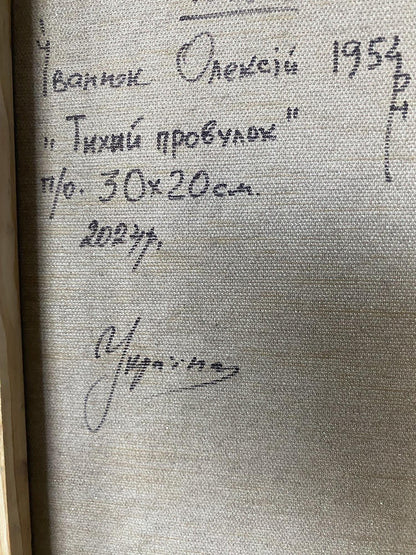 Іванюк Олексій 1954 р.н
"Тихий провулок"
п/о. 30х20см.
2024р.
Україна